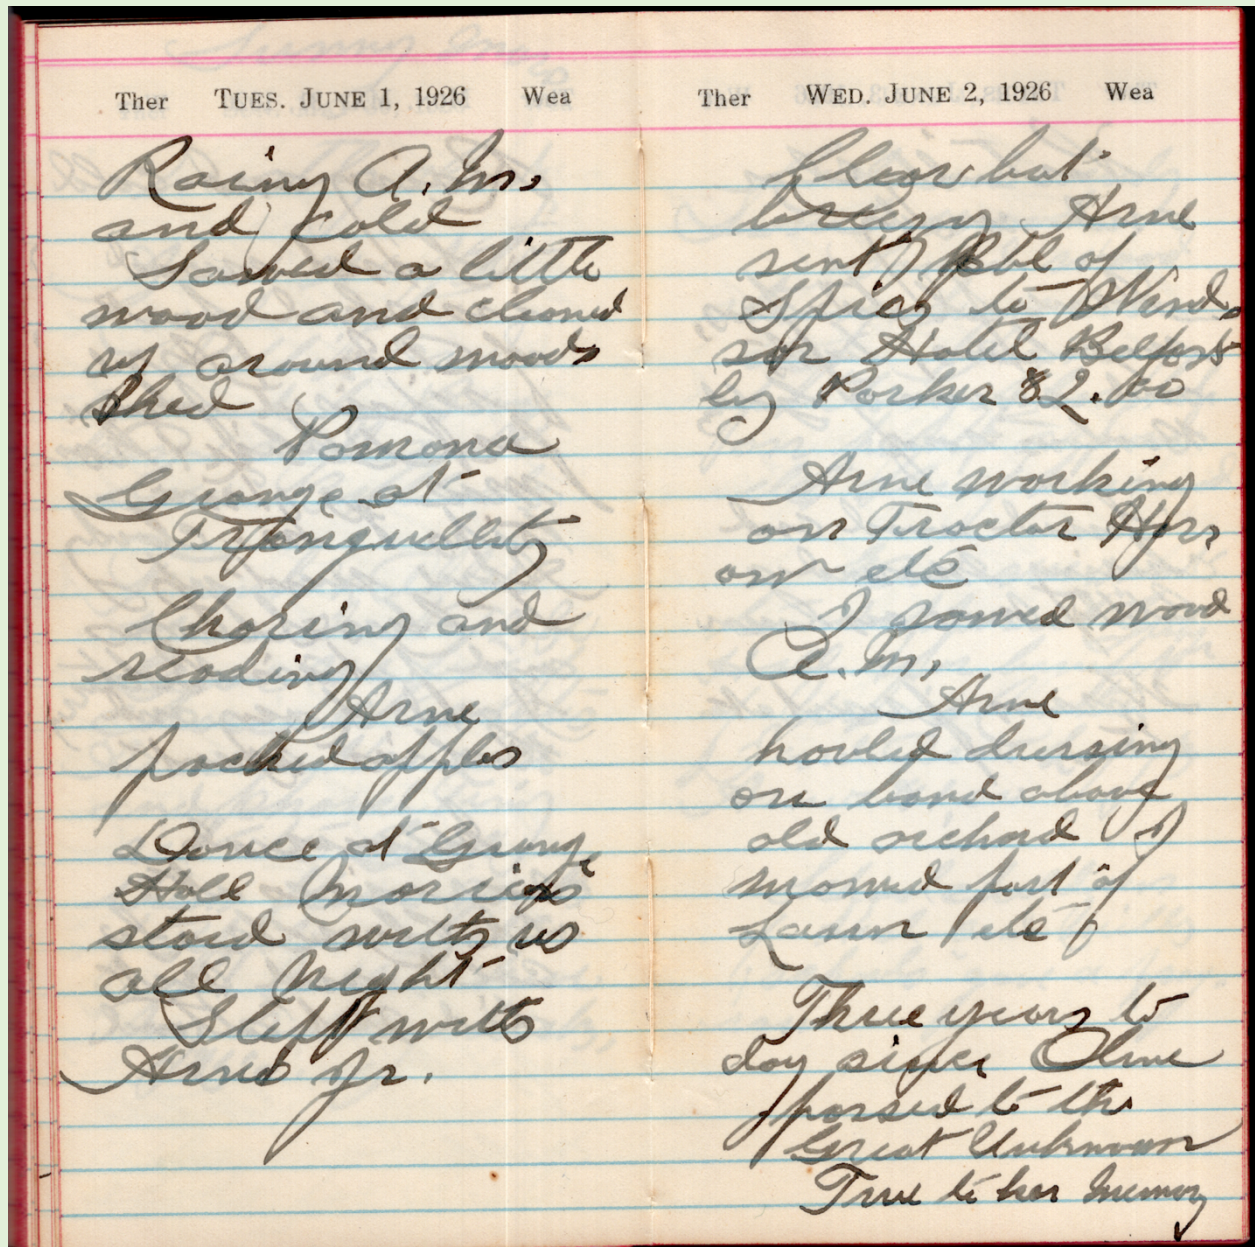 Ther TUES. JUNE 1, 1926 Wea
Rainy A.M.
and cold
Sawed a little
wood and cleaned
up around wood
shed
Pomona
Grange at
Tranquillity
Choring and
reading
Arne
packed apples
Dance at Grange
Hall
staid with us
all night
Slept with
Arne Jr.
Ther WED. JUNE 2, 1926 Wea
Clear but
breezy Arne
sent Bbl of
Spies to Wind
sor Hotel Belfast
by Parker $2.00
Arne working
on Tractor Harr
ow etc
I sawed wood
A.M.
Arne
hauled dressing
on land above
old orchard I
mowed part of
Lawn etc
Three years to
day since Olive
passed to the
Great Unknown
True to her memory